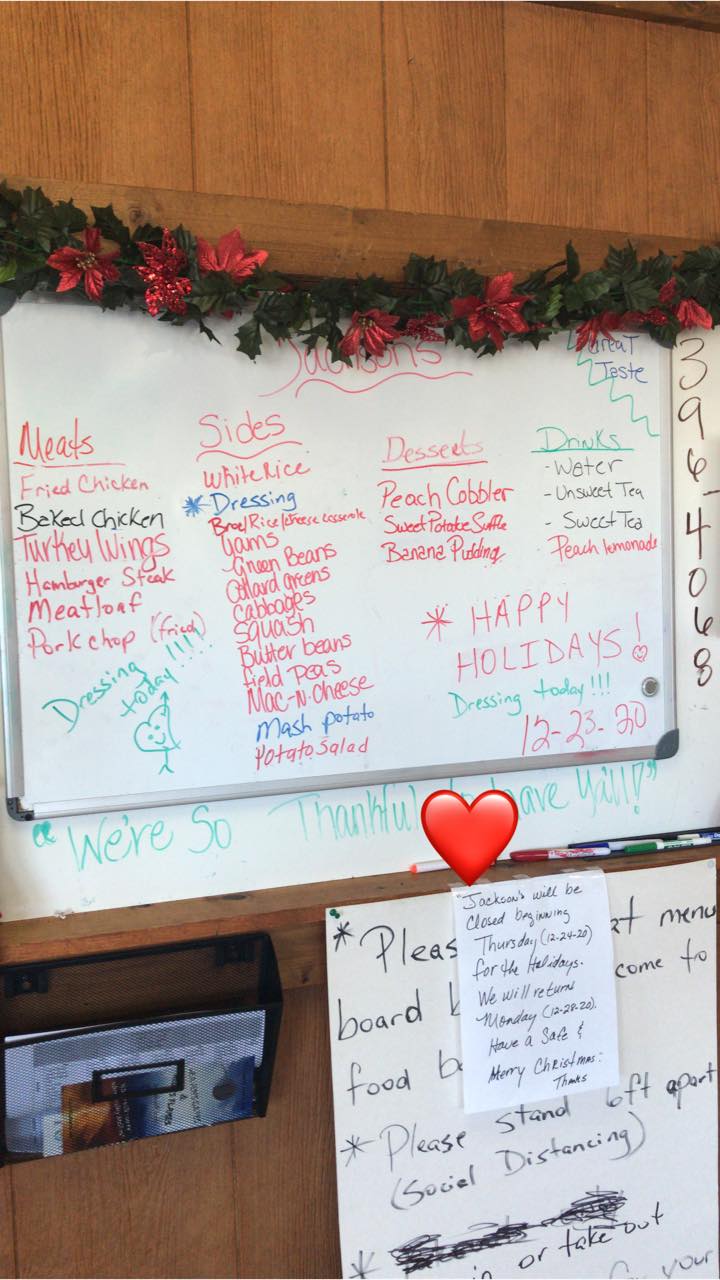 Jacksons
Great
Taste
Meats
Fried Chicken
Baked Chicken
Turkey Wings
Hamburger Steak
Meatloaf
Pork chop (fried)
Dressing
today !!!!
Sides
White Rice
* Dressing
Broc/Rice/cheese casserole
Yams
Green Beans
Collard greens
Cabbages
Squash
Butter beans
field Peas
Mac-N-Cheese
Mash potato
Potato Salad
Desserts
Peach Cobbler
Sweet Potato Suffle
Banana Pudding
Drinks
- Water
- Unsweet Tea
- Sweet Tea
Peach lemonade
* HAPPY
HOLIDAYS!
Dressing today!!!
12-23-20
396-4068
"We're So Thankful to have Ya'll!"
Jackson's will be
closed beginning
Thursday (12-24-20)
for the Holidays.
We will return
Monday (12-28-20).
Have a Safe &
Merry Christmas.
Thanks
* menu
board come to
food
* Please stand 6ft apart
(Social Distancing)
* or take out
your